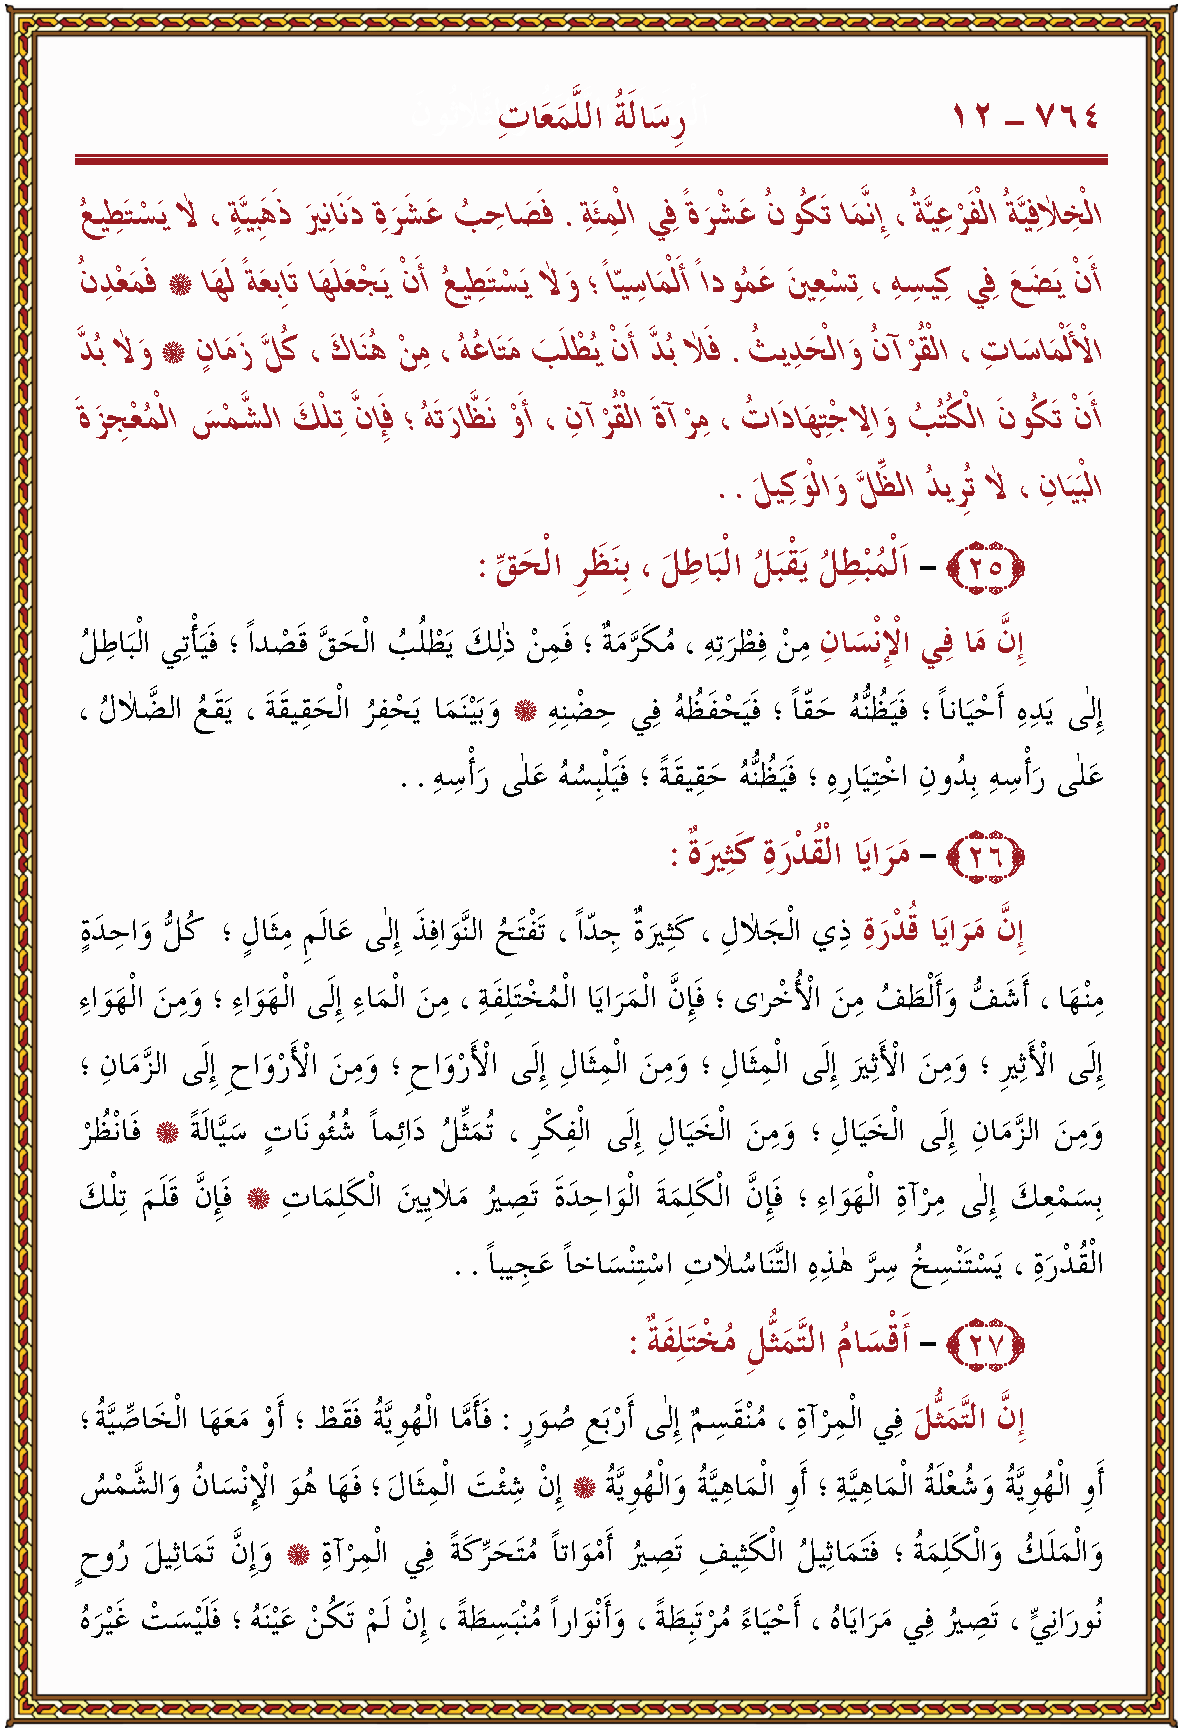 ٧٦٤ – ١٢ رِسَالَةُ اللَّمَعَاتِ
الْخِلَافِيَّةُ الْفَرْعِيَّةُ ، إِنَّمَا تَكُونُ عَشْرَةً فِي الْمِئَةِ . فَصَاحِبُ عَشَرَةِ دَنَانِيرَ ذَهَبِيَّةٍ ، لَا يَسْتَطِيعُ
أَنْ يَضَعَ فِي كِيسِهِ ، تِسْعِينَ عَمُوداً أَلْمَاسِيّاً ؛ وَلَا يَسْتَطِيعُ أَنْ يَجْعَلَهَا تَابِعَةً لَهَا ۞ فَمَعْدِنُ
الْأَلْمَاسَاتِ ، الْقُرْآنُ وَالْحَدِيثُ . فَلَا بُدَّ أَنْ يُطْلَبَ مَتَاعُهُ ، مِنْ هُنَاكَ ، كُلَّ زَمَانٍ ۞ وَلَا بُدَّ
أَنْ تَكُونَ الْكُتُبُ وَالِاجْتِهَادَاتُ ، مِرْآةَ الْقُرْآنِ ، أَوْ نَظَّارَتَهُ ؛ فَإِنَّ تِلْكَ الشَّمْسَ الْمُعْجِزَةَ
الْبَيَانِ ، لَا تُرِيدُ الظِّلَّ وَالْوَكِيلَ . .
﴿٢٥﴾ – اَلْمُبْطِلُ يَقْبَلُ الْبَاطِلَ ، بِنَظَرِ الْحَقِّ :
إِنَّ مَا فِي الْإِنْسَانِ مِنْ فِطْرَتِهِ ، مُكَرَّمَةٌ ؛ فَمِنْ ذٰلِكَ يَطْلُبُ الْحَقَّ قَصْداً ؛ فَيَأْتِي الْبَاطِلُ
إِلٰى يَدِهِ أَحْيَاناً ؛ فَيَظُنُّهُ حَقّاً ؛ فَيَحْفَظُهُ فِي حِضْنِهِ ۞ وَبَيْنَمَا يَحْفِرُ الْحَقِيقَةَ ، يَقَعُ الضَّلَالُ ،
عَلٰى رَأْسِهِ بِدُونِ اخْتِيَارِهِ ؛ فَيَظُنُّهُ حَقِيقَةً ؛ فَيَلْبِسُهُ عَلٰى رَأْسِهِ . .
﴿٢٦﴾ – مَرَايَا الْقُدْرَةِ كَثِيرَةٌ :
إِنَّ مَرَايَا قُدْرَةِ ذِي الْجَلَالِ ، كَثِيرَةٌ جِدّاً ، تَفْتَحُ النَّوَافِذَ إِلٰى عَالَمِ مِثَالٍ ؛ كُلُّ وَاحِدَةٍ
مِنْهَا ، أَشَفُّ وَأَلْطَفُ مِنَ الْأُخْرٰى ؛ فَإِنَّ الْمَرَايَا الْمُخْتَلِفَةِ ، مِنَ الْمَاءِ إِلَى الْهَوَاءِ ؛ وَمِنَ الْهَوَاءِ
إِلَى الْأَثِيرِ ؛ وَمِنَ الْأَثِيرَ إِلَى الْمِثَالِ ؛ وَمِنَ الْمِثَالِ إِلَى الْأَرْوَاحِ ؛ وَمِنَ الْأَرْوَاحِ إِلَى الزَّمَانِ ؛
وَمِنَ الزَّمَانِ إِلَى الْخَيَالِ ؛ وَمِنَ الْخَيَالِ إِلَى الْفِكْرِ ، تُمَثِّلُ دَائِماً شُئُونَاتٍ سَيَّالَةً ۞ فَانْظُرْ
بِسَمْعِكَ إِلٰى مِرْآةِ الْهَوَاءِ ؛ فَإِنَّ الْكَلِمَةَ الْوَاحِدَةَ تَصِيرُ مَلَايِينَ الْكَلِمَاتِ ۞ فَإِنَّ قَلَمَ تِلْكَ
الْقُدْرَةِ ، يَسْتَنْسِخُ سِرَّ هٰذِهِ التَّنَاسُلَاتِ اسْتِنْسَاخاً عَجِيباً . .
﴿٢٧﴾ – أَقْسَامُ التَّمَثُّلِ مُخْتَلِفَةٌ :
إِنَّ التَّمَثُّلَ فِي الْمِرْآةِ ، مُنْقَسِمٌ إِلٰى أَرْبَعِ صُوَرٍ : فَأَمَّا الْهُوِيَّةُ فَقَطْ ؛ أَوْ مَعَهَا الْخَاصِّيَّةُ ؛
أَوِ الْهُوِيَّةُ وَشُعْلَةُ الْمَاهِيَّةِ ؛ أَوِ الْمَاهِيَّةُ وَالْهُوِيَّةُ ۞ إِنْ شِئْتَ الْمِثَالَ ؛ فَهَا هُوَ الْإِنْسَانُ وَالشَّمْسُ
وَالْمَلَكُ وَالْكَلِمَةُ ؛ فَتَمَاثِيلُ الْكَثِيفِ تَصِيرُ أَمْوَاتاً مُتَحَرِّكَةً فِي الْمِرْآةِ ۞ وَإِنَّ تَمَاثِيلَ رُوحٍ
نُورَانِيٍّ ، تَصِيرُ فِي مَرَايَاهُ ، أَحْيَاءً مُرْتَبِطَةً ، وَأَنْوَاراً مُنْبَسِطَةً ، إِنْ لَمْ تَكُنْ عَيْنَهُ ؛ فَلَيْسَتْ غَيْرَهُ